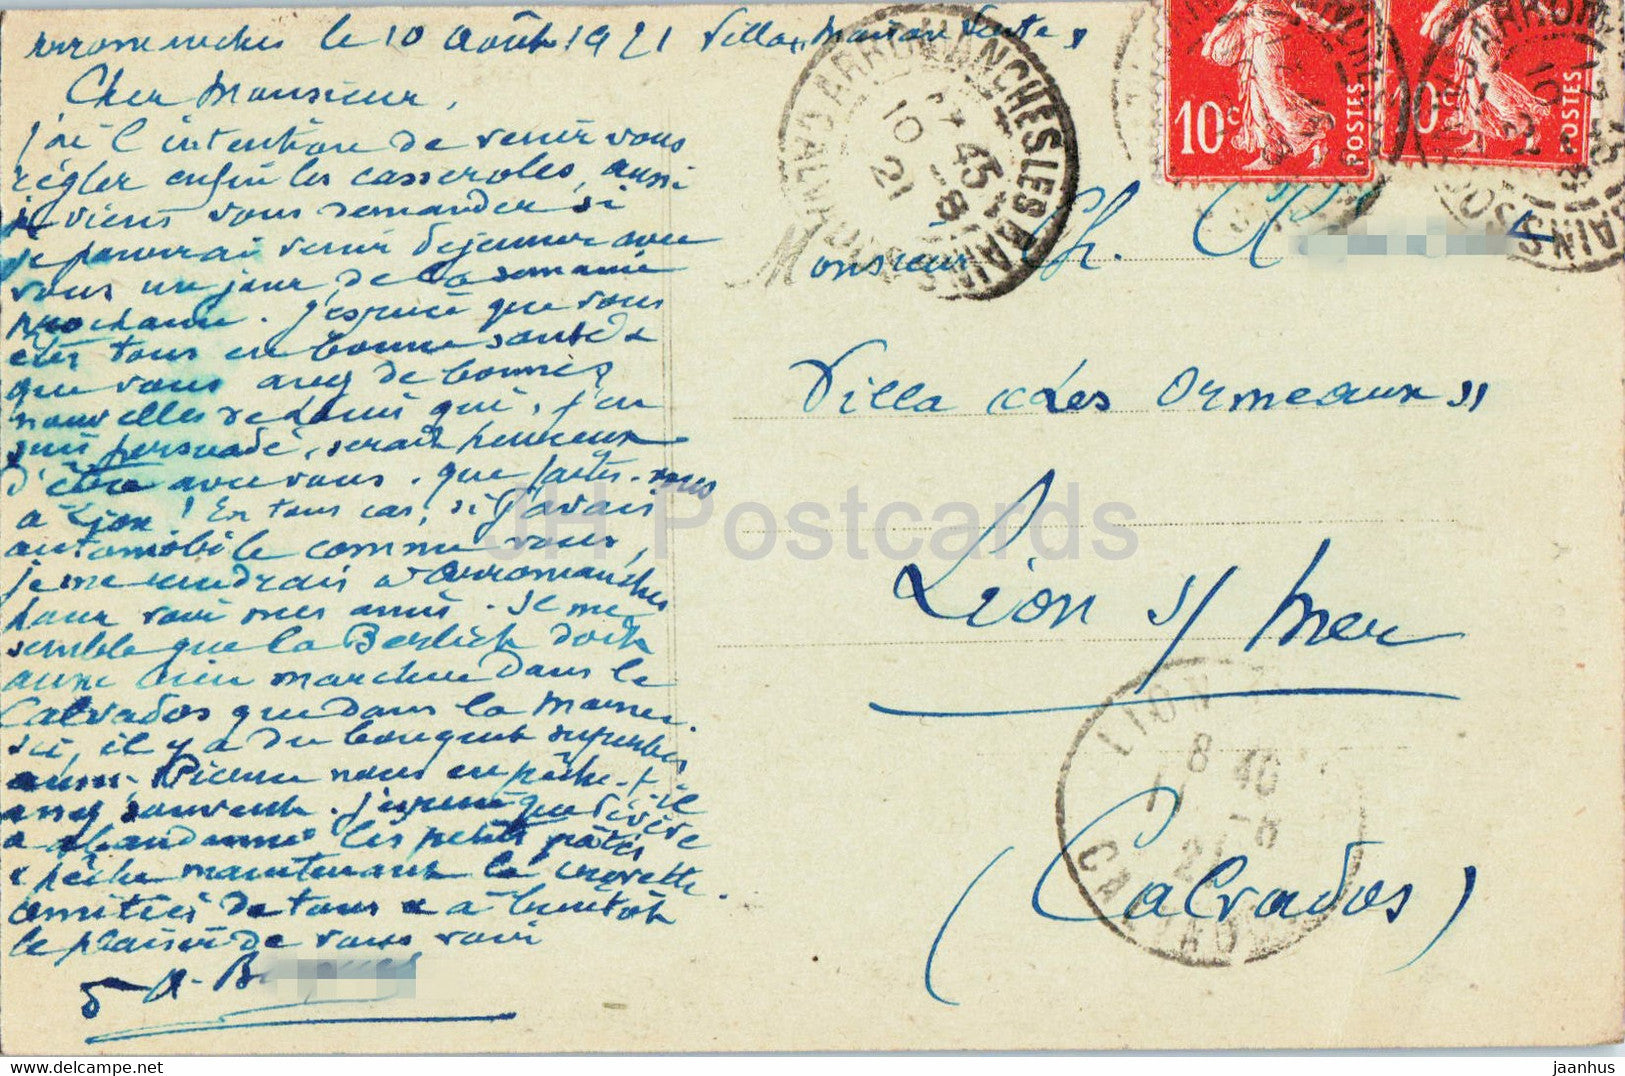 Arromanches le 10 Août 1921 Villa "Maison Verte"
Cher Monsieur,
j'ai l'intention de venir vous
régler enfin les casseroles, aussi
je viens vous demander si
je pourrai venir déjeuner avec
vous un jour de la semaine
prochaine. J'espère que vous
êtes tous en bonne santé &
que vous avez de bonnes
nouvelles de Louis qui, j'en
suis persuadé, serait heureux
d'être avec vous. Que faites-vous
à Lion! En tous cas, si j'avais
automobile comme vous,
je me rendrais à Arromanches
pour voir mes amis. Il me
semble que la Berliet doit
aussi bien marcher dans le
Calvados que dans la Marne.
Ici, il y a du bouquet superbe
aussi, Pierre nous en pêche
assez souvent. J'espère que
a abandonné les petits pâtés
& pêche maintenant la crevette.
Amitiés de tous & à bientôt
le plaisir de vous voir
A. B
Monsieur Ch. R
Villa "Les Ormeaux"
Lion s/ Mer
(Calvados)
ARROMANCHES LES BAINS
CALVADOS
17 45
10 - 8
21
10c
POSTES
10c
POSTES
LION
8 40
11 - 8
21
CALVADOS
JH Postcards
jaanhus
www.delcampe.net